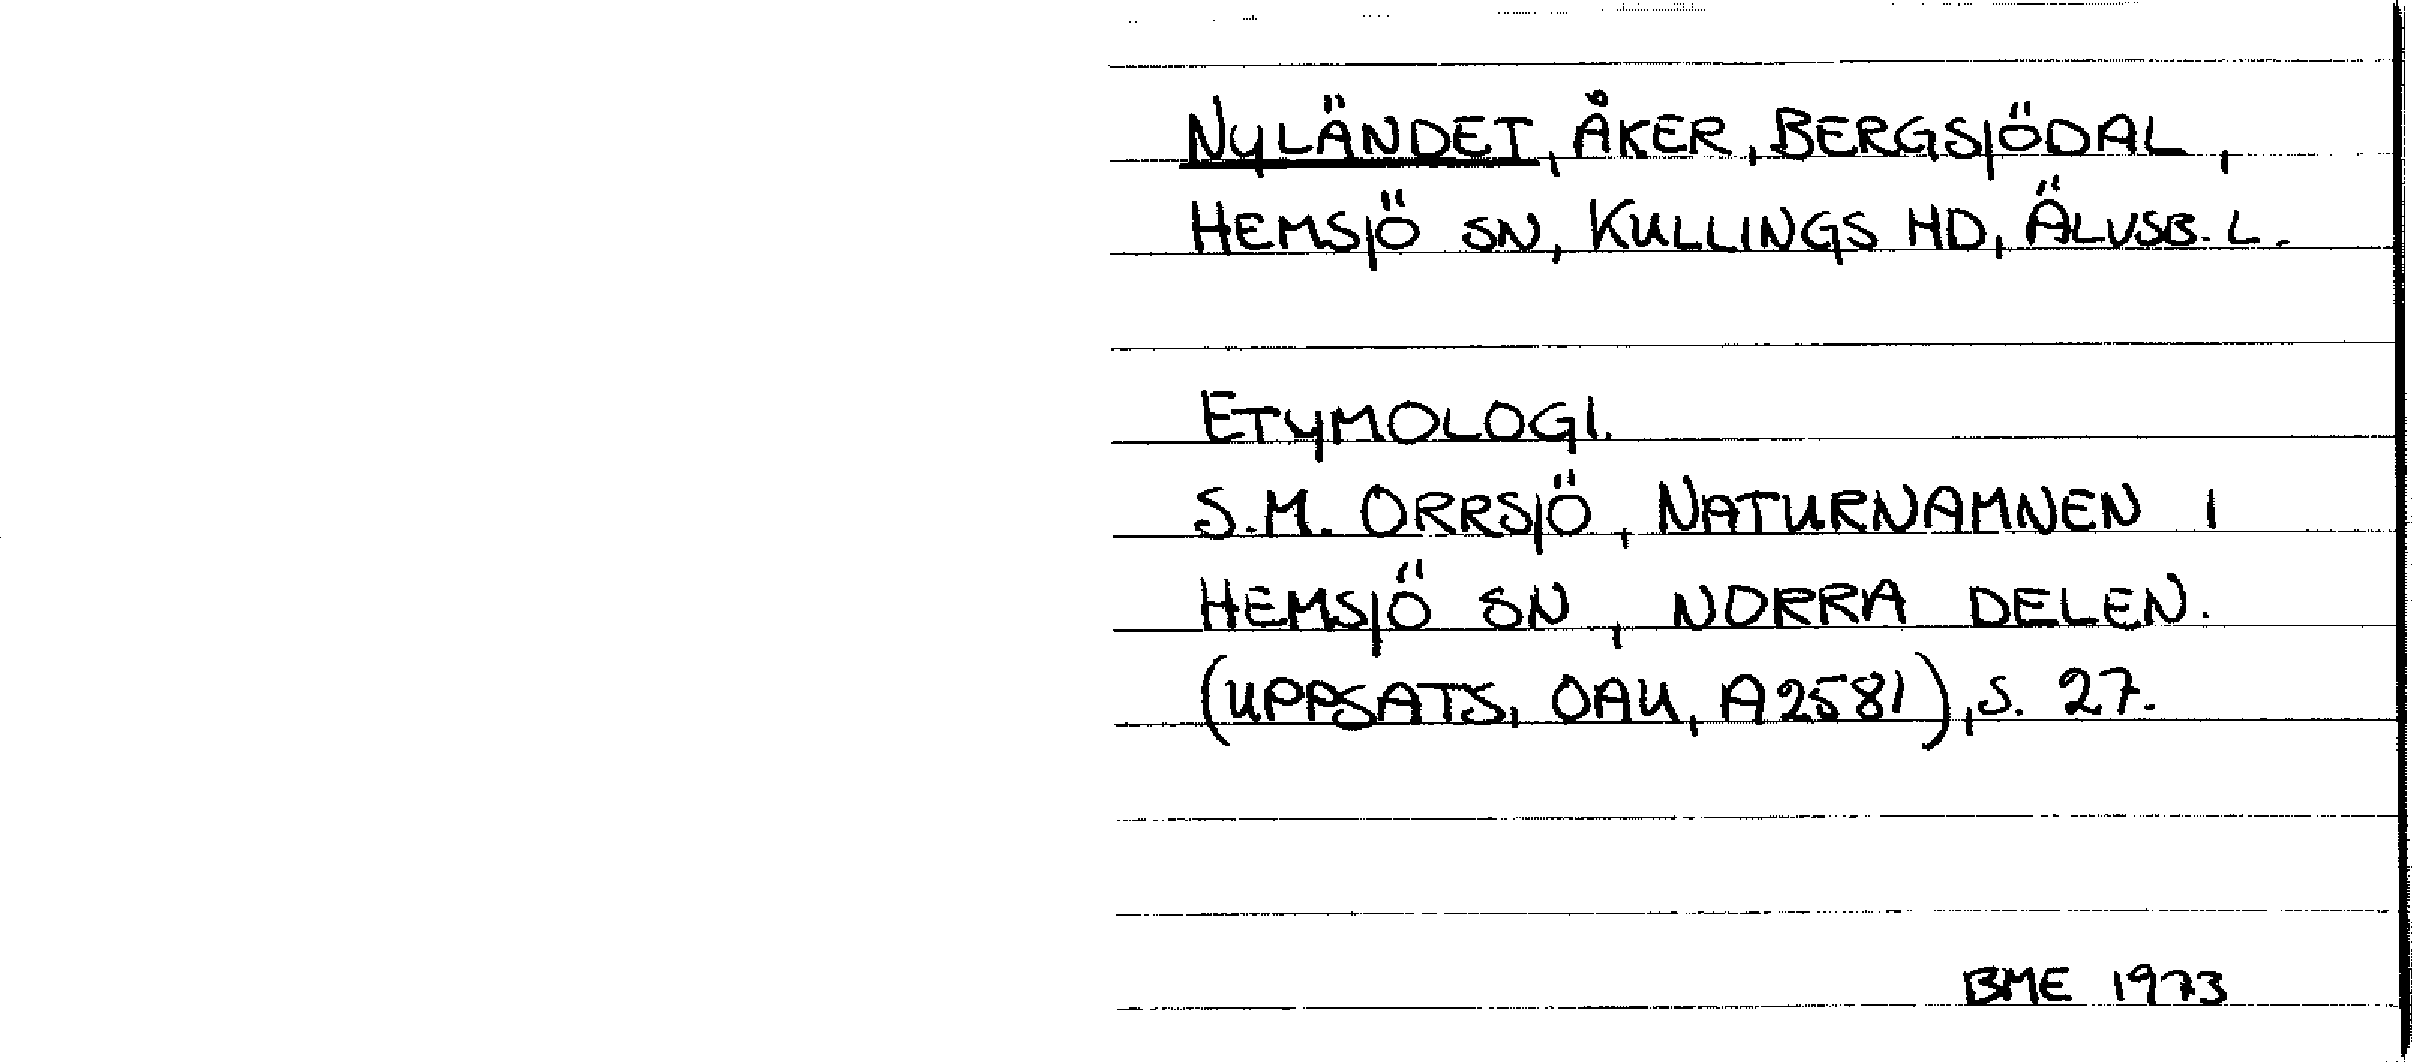 NYLÄNDET, ÅKER, BERGSJÖDAL,
HEMSJÖ SN, KULLINGS HD, ÄLVSB. L.
ETYMOLOGI.
S.M. ORRSJÖ, NATURNAMNEN I
HEMSJÖ SN, NORRA DELEN.
(UPPSATS, OAU, A2581), S. 27.
BME 1973